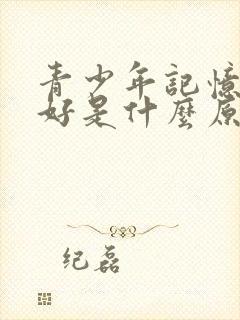 青少年記憶
好是什麼原
纪磊